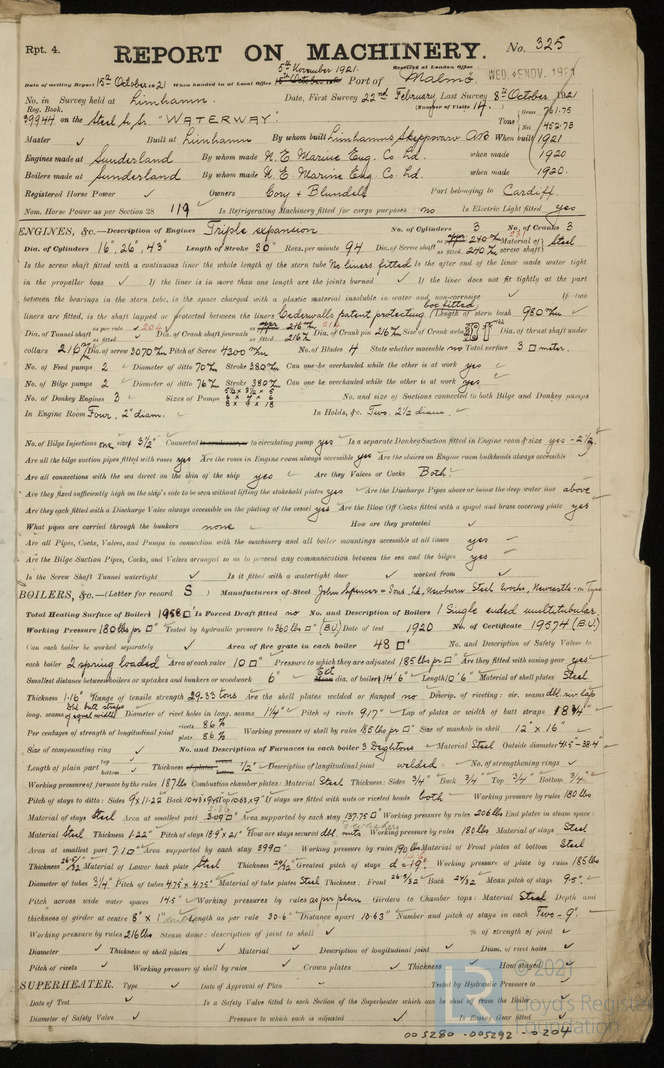 Rpt. 4.
REPORT ON MACHINERY.
No. 325
5th November 1921.
Received at London Office WED. 9 NOV. 1921
Date of writing Report 15th October 1921 When handed in at Local Office Port of Malmö.
No. in Survey held at Limhamn. Date, First Survey 22nd February, Last Survey 8th October, 1921
Reg. Book. (Number of Visits 17.)
39944 on the Steel s.s. "WATERWAY". Tons Gross 761.75 Net 452.78
Master ✓ Built at Limhamn By whom built Limhamns Skeppsvarv A.B. When built 1921
Engines made at Sunderland By whom made N.E. Marine Eng. Co. Ltd. when made 1920
Boilers made at Sunderland By whom made N.E. Marine Eng. Co. Ld. when made 1920.
Registered Horse Power ✓ Owners Cory & Blundell Port belonging to Cardiff.
Nom. Horse Power as per Section 28 119 Is Refrigerating Machinery fitted for cargo purposes no Is Electric Light fitted yes
ENGINES, &c.—Description of Engines Triple expansion No. of Cylinders 3 No. of Cranks 3
Dia. of Cylinders 16", 26", 43" Length of Stroke 30" Revs. per minute 94 Dia. of Screw shaft as fitted 240 m/m Material of screw shaft Steel
Is the screw shaft fitted with a continuous liner the whole length of the stern tube No liners fitted Is the after end of the liner made water tight
in the propeller boss ✓ If the liner is in more than one length are the joints burned ✓ If the liner does not fit tightly at the part
between the bearings in the stern tube, is the space charged with a plastic material insoluble in water and non-corrosive ✓ If two
liners are fitted, is the shaft lapped or protected between the liners Cederwalls patent protecting box fitted. Length of stern bush 980 m/m
Dia. of Tunnel shaft as per rule as fitted ✓ Dia. of Crank shaft journals as fitted 216 m/m Dia. of Crank pin 216 m/m Size of Crank webs Dia. of thrust shaft under
collars 216 m/m Dia. of screw 3070 m/m Pitch of Screw 4200 m/m No. of Blades 4 State whether moveable no Total surface 3 □ meter.
No. of Feed pumps 2 Diameter of ditto 70 m/m Stroke 380 m/m Can one be overhauled while the other is at work yes
No. of Bilge pumps 2 Diameter of ditto 76 m/m Stroke 380 m/m Can one be overhauled while the other is at work yes
No. of Donkey Engines 3 Sizes of Pumps 5½ x 3½ x 5 6 x 4 x 6 8 x 9 x 18 No. and size of Suctions connected to both Bilge and Donkey pumps
In Engine Room Four, 2" diam. In Holds, &c. Two, 2½ diam.
No. of Bilge Injections one sizes 3½" Connected to circulating pump yes Is a separate Donkey Suction fitted in Engine room & size yes - 2½"
Are all the bilge suction pipes fitted with roses yes Are the roses in Engine room always accessible yes Are the sluices on Engine room bulkheads always accessible ✓
Are all connections with the sea direct on the skin of the ship yes Are they Valves or Cocks Both.
Are they fixed sufficiently high on the ship's side to be seen without lifting the stokehold plates yes Are the Discharge Pipes above or below the deep water line above
Are they each fitted with a Discharge Valve always accessible on the plating of the vessel yes Are the Blow Off Cocks fitted with a spigot and brass covering plate yes
What pipes are carried through the bunkers none How are they protected ✓
Are all Pipes, Cocks, Valves, and Pumps in connection with the machinery and all boiler mountings accessible at all times yes
Are the Bilge Suction Pipes, Cocks, and Valves arranged so as to prevent any communication between the sea and the bilges yes
Is the Screw Shaft Tunnel watertight ✓ Is it fitted with a watertight door ✓ worked from ✓
BOILERS, &c.—(Letter for record S) Manufacturers of Steel John Spencer & Sons Ld, Newburn Steel Works, Newcastle-on-Tyne
Total Heating Surface of Boilers 1958 □' Is Forced Draft fitted no No. and Description of Boilers 1 Single ended multitubular.
Working Pressure 180 lbs per □" Tested by hydraulic pressure to 360 lbs □" (B.U.) Date of test 1920 No. of Certificate 19574 (B.U.)
Can each boiler be worked separately ✓ Area of fire grate in each boiler 48 □' No. and Description of Safety Valves to
each boiler 2 spring loaded Area of each valve 10 □" Pressure to which they are adjusted 185 lbs per □" Are they fitted with easing gear yes
Smallest distance between boilers or uptakes and bunkers or woodwork 6" Ext. dia. of boilers 14'6" Length 10'6" Material of shell plates Steel
Thickness 1.16" Range of tensile strength 29-33 tons Are the shell plates welded or flanged no Descrip. of riveting: cir. seams dbl. riv. lap
long. seams dbl. butt straps of equal width Diameter of rivet holes in long. seams 1¼" Pitch of rivets 9.17" Lap of plates or width of butt straps 18¾"
Per centages of strength of longitudinal joint rivets 86 % plate 86 % Working pressure of shell by rules 185 lbs per □" Size of manhole in shell 12" x 16"
Size of compensating ring ✓ No. and Description of Furnaces in each boiler 3 Deightons Material Steel Outside diameter 41.5-38.4"
Length of plain part top bottom ✓ Thickness of plates ½" Description of longitudinal joint welded No. of strengthening rings ✓
Working pressure of furnace by the rules 187 lbs Combustion chamber plates: Material Steel Thickness: Sides ¾" Back ¾" Top ¾" Bottom ¾"
Pitch of stays to ditto: Sides 9 x 11.22 If stays are fitted with nuts or riveted heads both Working pressure by rules 180 lbs
Material of stays Steel Area at smallest part Area supported by each stay 137.75 □" Working pressure by rules 206 lbs End plates in steam space:
Material Steel Thickness 1.22" Pitch of stays 18.9" x 21" How are stays secured dbl. nuts Working pressure by rules 180 lbs Material of stays Steel
Area at smallest part 7.1 □" Area supported by each stay 399 □" Working pressure by rules 190 lbs Material of Front plates at bottom Steel
Thickness 26.5/32 Material of Lower back plate Steel Thickness 29/32 Greatest pitch of stays d = 19" Working pressure of plate by rules 185 lbs
Diameter of tubes 3¼" Pitch of tubes 4.75 x 4.75" Material of tube plates Steel Thickness: Front 26.5/32" Back 24/32 Mean pitch of stays 9.5"
Pitch across wide water spaces 14.5" Working pressures by rules as per plan Girders to Chamber tops: Material Steel Depth and
thickness of girder at centre 8" x 1" Length as per rule 30.6" Distance apart 10.63" Number and pitch of stays in each Two - 9"
Working pressure by rules 216 lbs Steam dome: description of joint to shell ✓ % of strength of joint ✓
Diameter ✓ Thickness of shell plates ✓ Material ✓ Description of longitudinal joint ✓ Diam. of rivet holes ✓
Pitch of rivets ✓ Working pressure of shell by rules ✓ Crown plates ✓ Thickness ✓ How stayed ✓
SUPERHEATER. Type ✓ Date of Approval of Plan ✓ Tested by Hydraulic Pressure to ✓
Date of Test ✓ Is a Safety Valve fitted to each Section of the Superheater which can be shut off from the Boiler
Diameter of Safety Valve ✓ Pressure to which each is adjusted ✓ Is Easing Gear fitted ✓
© 2021
Lloyd's Register
Foundation
005280-005292-0204